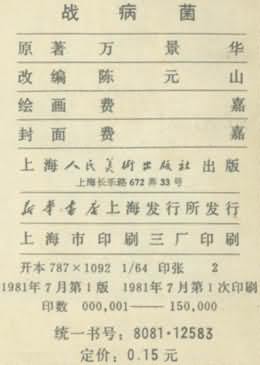 战病菌
原著万景华
改编陈元山
绘画费嘉
封面费嘉
上海人民美术出版社出版
上海长乐路672弄33号
新华书店上海发行所发行
上海市印刷三厂印刷
开本787×1092 1/64 印张 2
1981年7月第1版 1981年7月第1次印刷
印数 000,001——150,000
统一书号：8081·12583
定价：0.15元